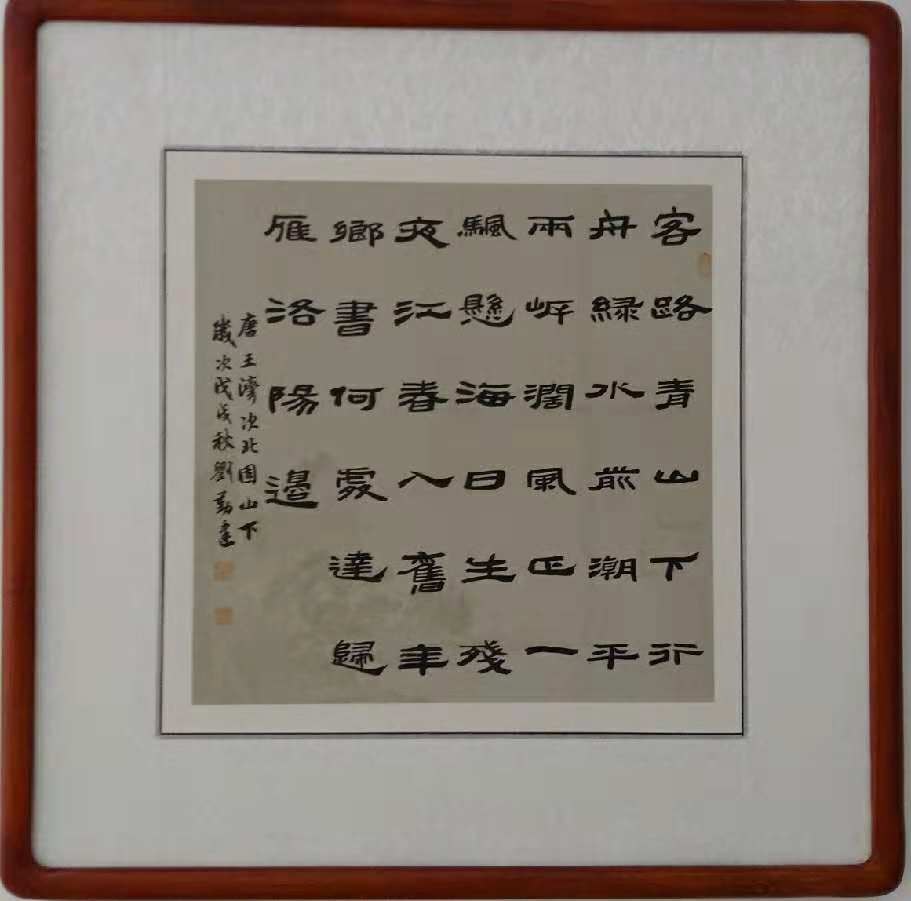 客路青山下行
舟綠水前潮平
兩岸濶風正一
颿懸海日生殘
夜江春入舊年
鄉書何處達歸
雁洛陽邊
唐王灣次北固山下
歲次戊戌秋劉